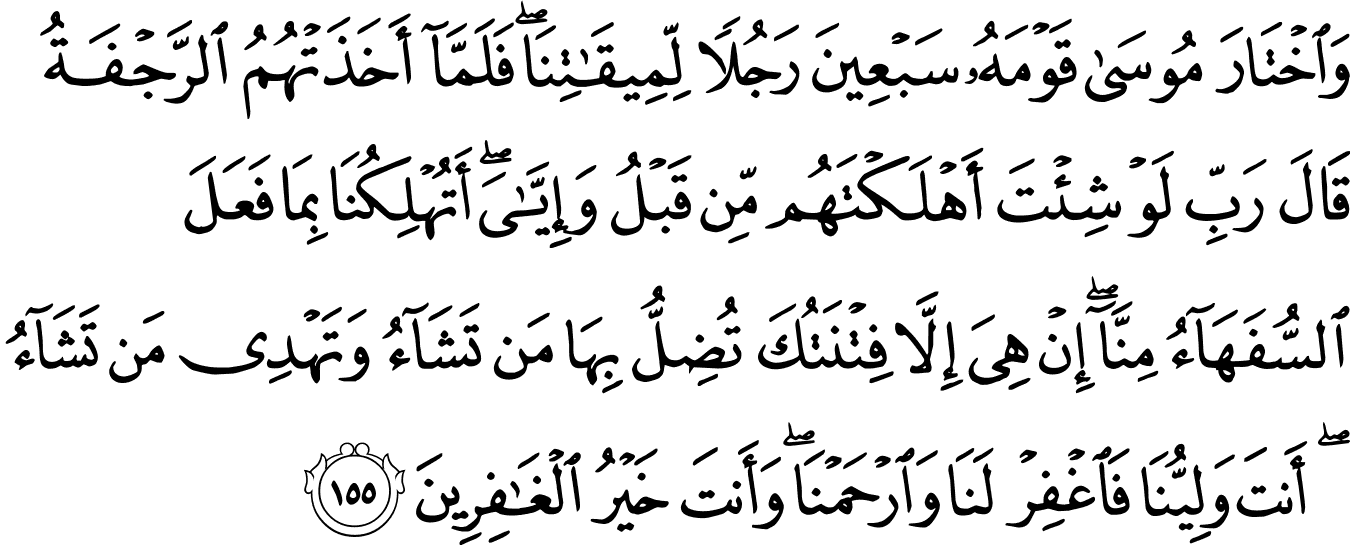 وَٱخْتَارَ مُوسَىٰ قَوْمَهُۥ سَبْعِينَ رَجُلًا لِّمِيقَـٰتِنَا ۖ فَلَمَّآ أَخَذَتْهُمُ ٱلرَّجْفَةُ
قَالَ رَبِّ لَوْ شِئْتَ أَهْلَكْتَهُم مِّن قَبْلُ وَإِيَّـٰىَ ۖ أَتُهْلِكُنَا بِمَا فَعَلَ
ٱلسُّفَهَآءُ مِنَّآ ۖ إِنْ هِىَ إِلَّا فِتْنَتُكَ تُضِلُّ بِهَا مَن تَشَآءُ وَتَهْدِى مَن تَشَآءُ
ۖ أَنتَ وَلِيُّنَا فَٱغْفِرْ لَنَا وَٱرْحَمْنَا ۖ وَأَنتَ خَيْرُ ٱلْغَـٰفِرِينَ ١٥٥